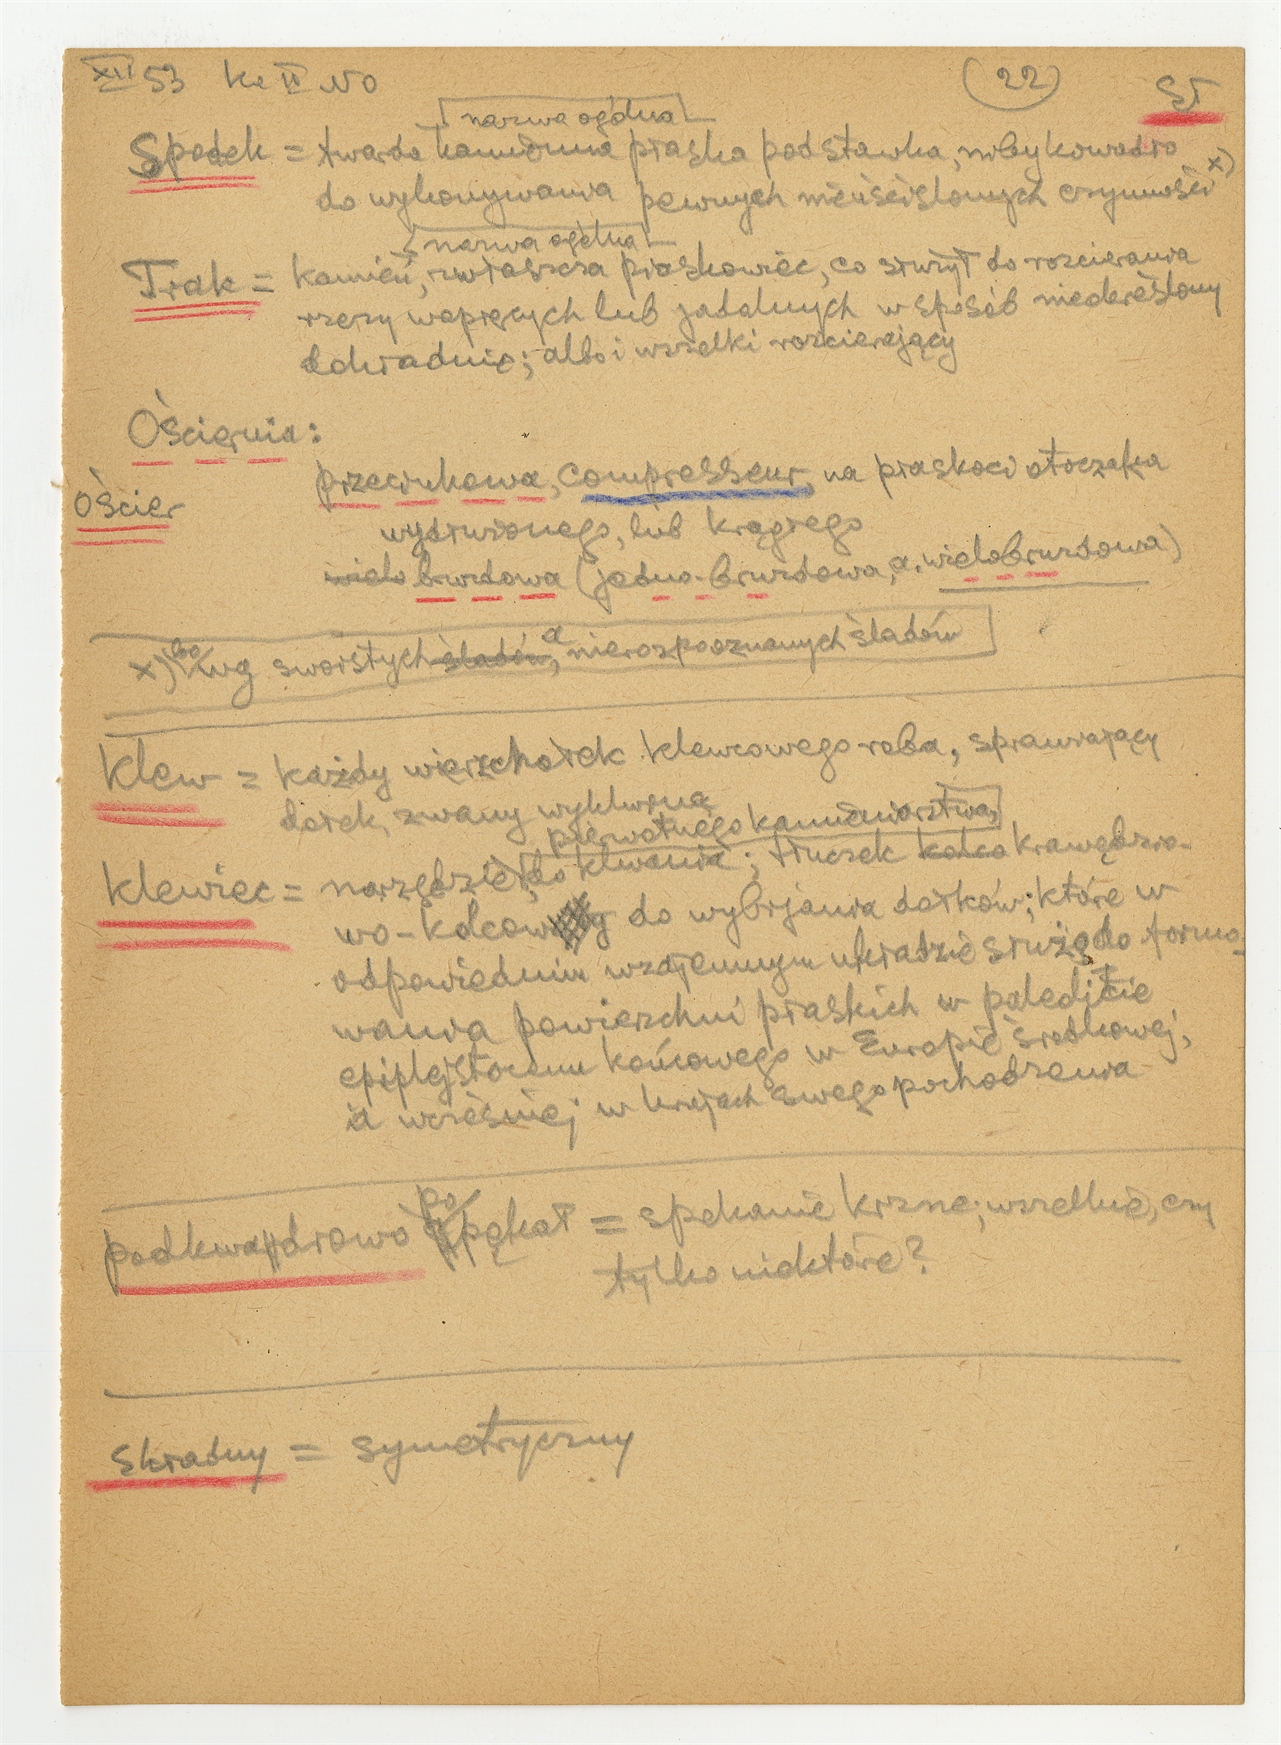 XII 53 Ke II No (22) St
nazwa ogólna
Spodek = twarda kamienna płaska podstawka, niby kowadło
do wykonywania pewnych nieuściślonych czynności x)
nazwa ogólna
Trak = kamień, zwłaszcza piaskowiec, co służył do rozcierania
rzeczy wapnących lub jadalnych w sposób nieokreślony
dokładnie; albo i wszelki rozcierający
Ościernia:
ościer przecinkowa, compresseur, na płaskoci otoczaka
wydłużonego, lub krągłego
wielo bruzdowa (jedno-bruzdowa, a. wielobruzdowa)
x) bo wg swoistych śladów, a nierozpoznanych śladów
Klew = każdy wierzchołek klewcowego rąba, sprawiający
dołek, zwany wyklwiną
pierwotnego kamieniarstwa,
klewiec = narzędzie do klwania; tłuczek kolco krawędzio-
wo-kolcowy do wybijania dołków; które w
odpowiednim wzajemnym układzie służą do formo-
wania powierzchni płaskich w paledjicie
epiplejstocenu końcowego w Europie środkowej,
a wcześniej w krajach swego pochodzenia
podkwadrowo popękał = spękanie krzne; wszelkie, czy
tylko niektóre?
składny = symetryczny